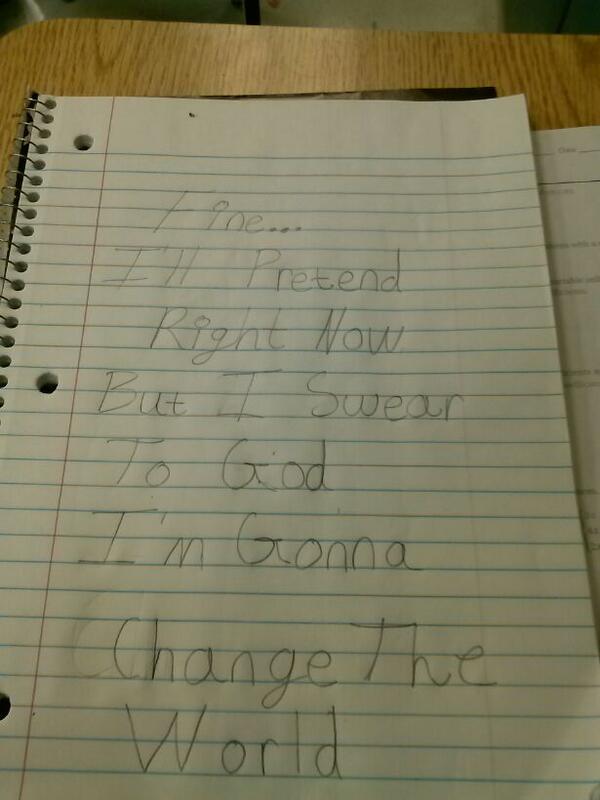 Fine...
I'll Pretend
Right Now
But I Swear
To God
I'm Gonna
Change The
World
Date